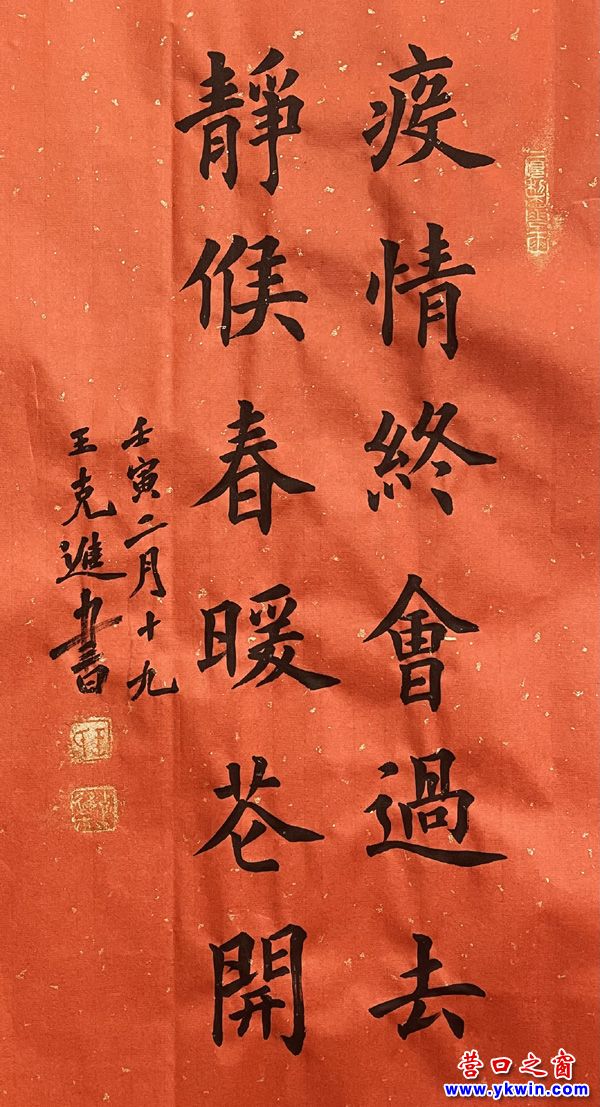 疫情終會過去
靜候春暖花開
壬寅二月十九
王克進書
营口之窗
www.ykwin.com